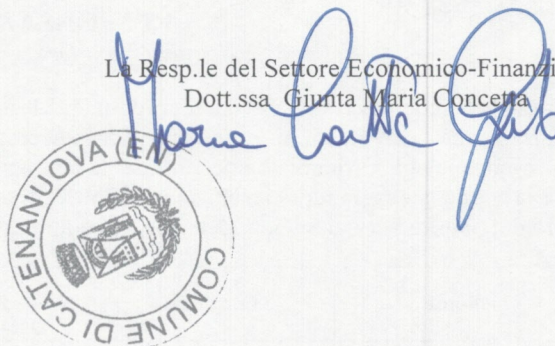 La Resp.le del Settore Economico-Finanzi
Dott.ssa Giunta Maria Concetta
Maria
COMUNE DI CATENANUOVA (EN)